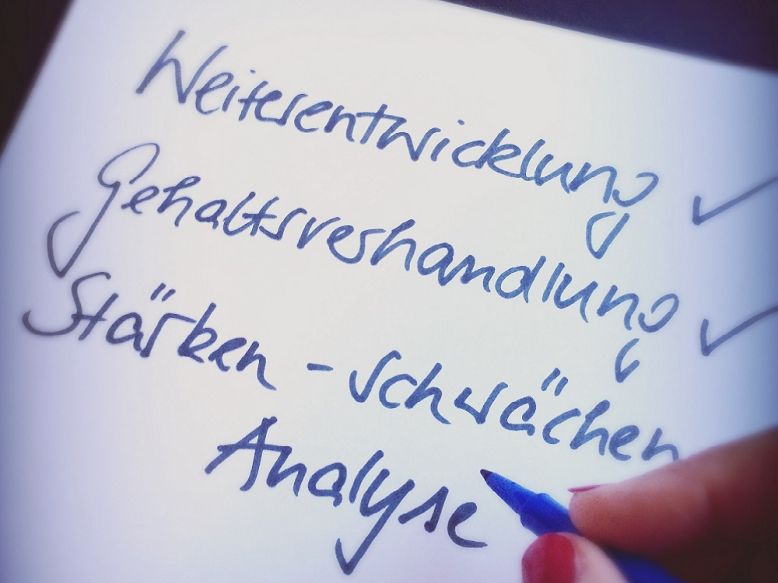 Weiterentwicklung ✓
Gehaltsverhandlung ✓
Stärken - schwächen
Analyse